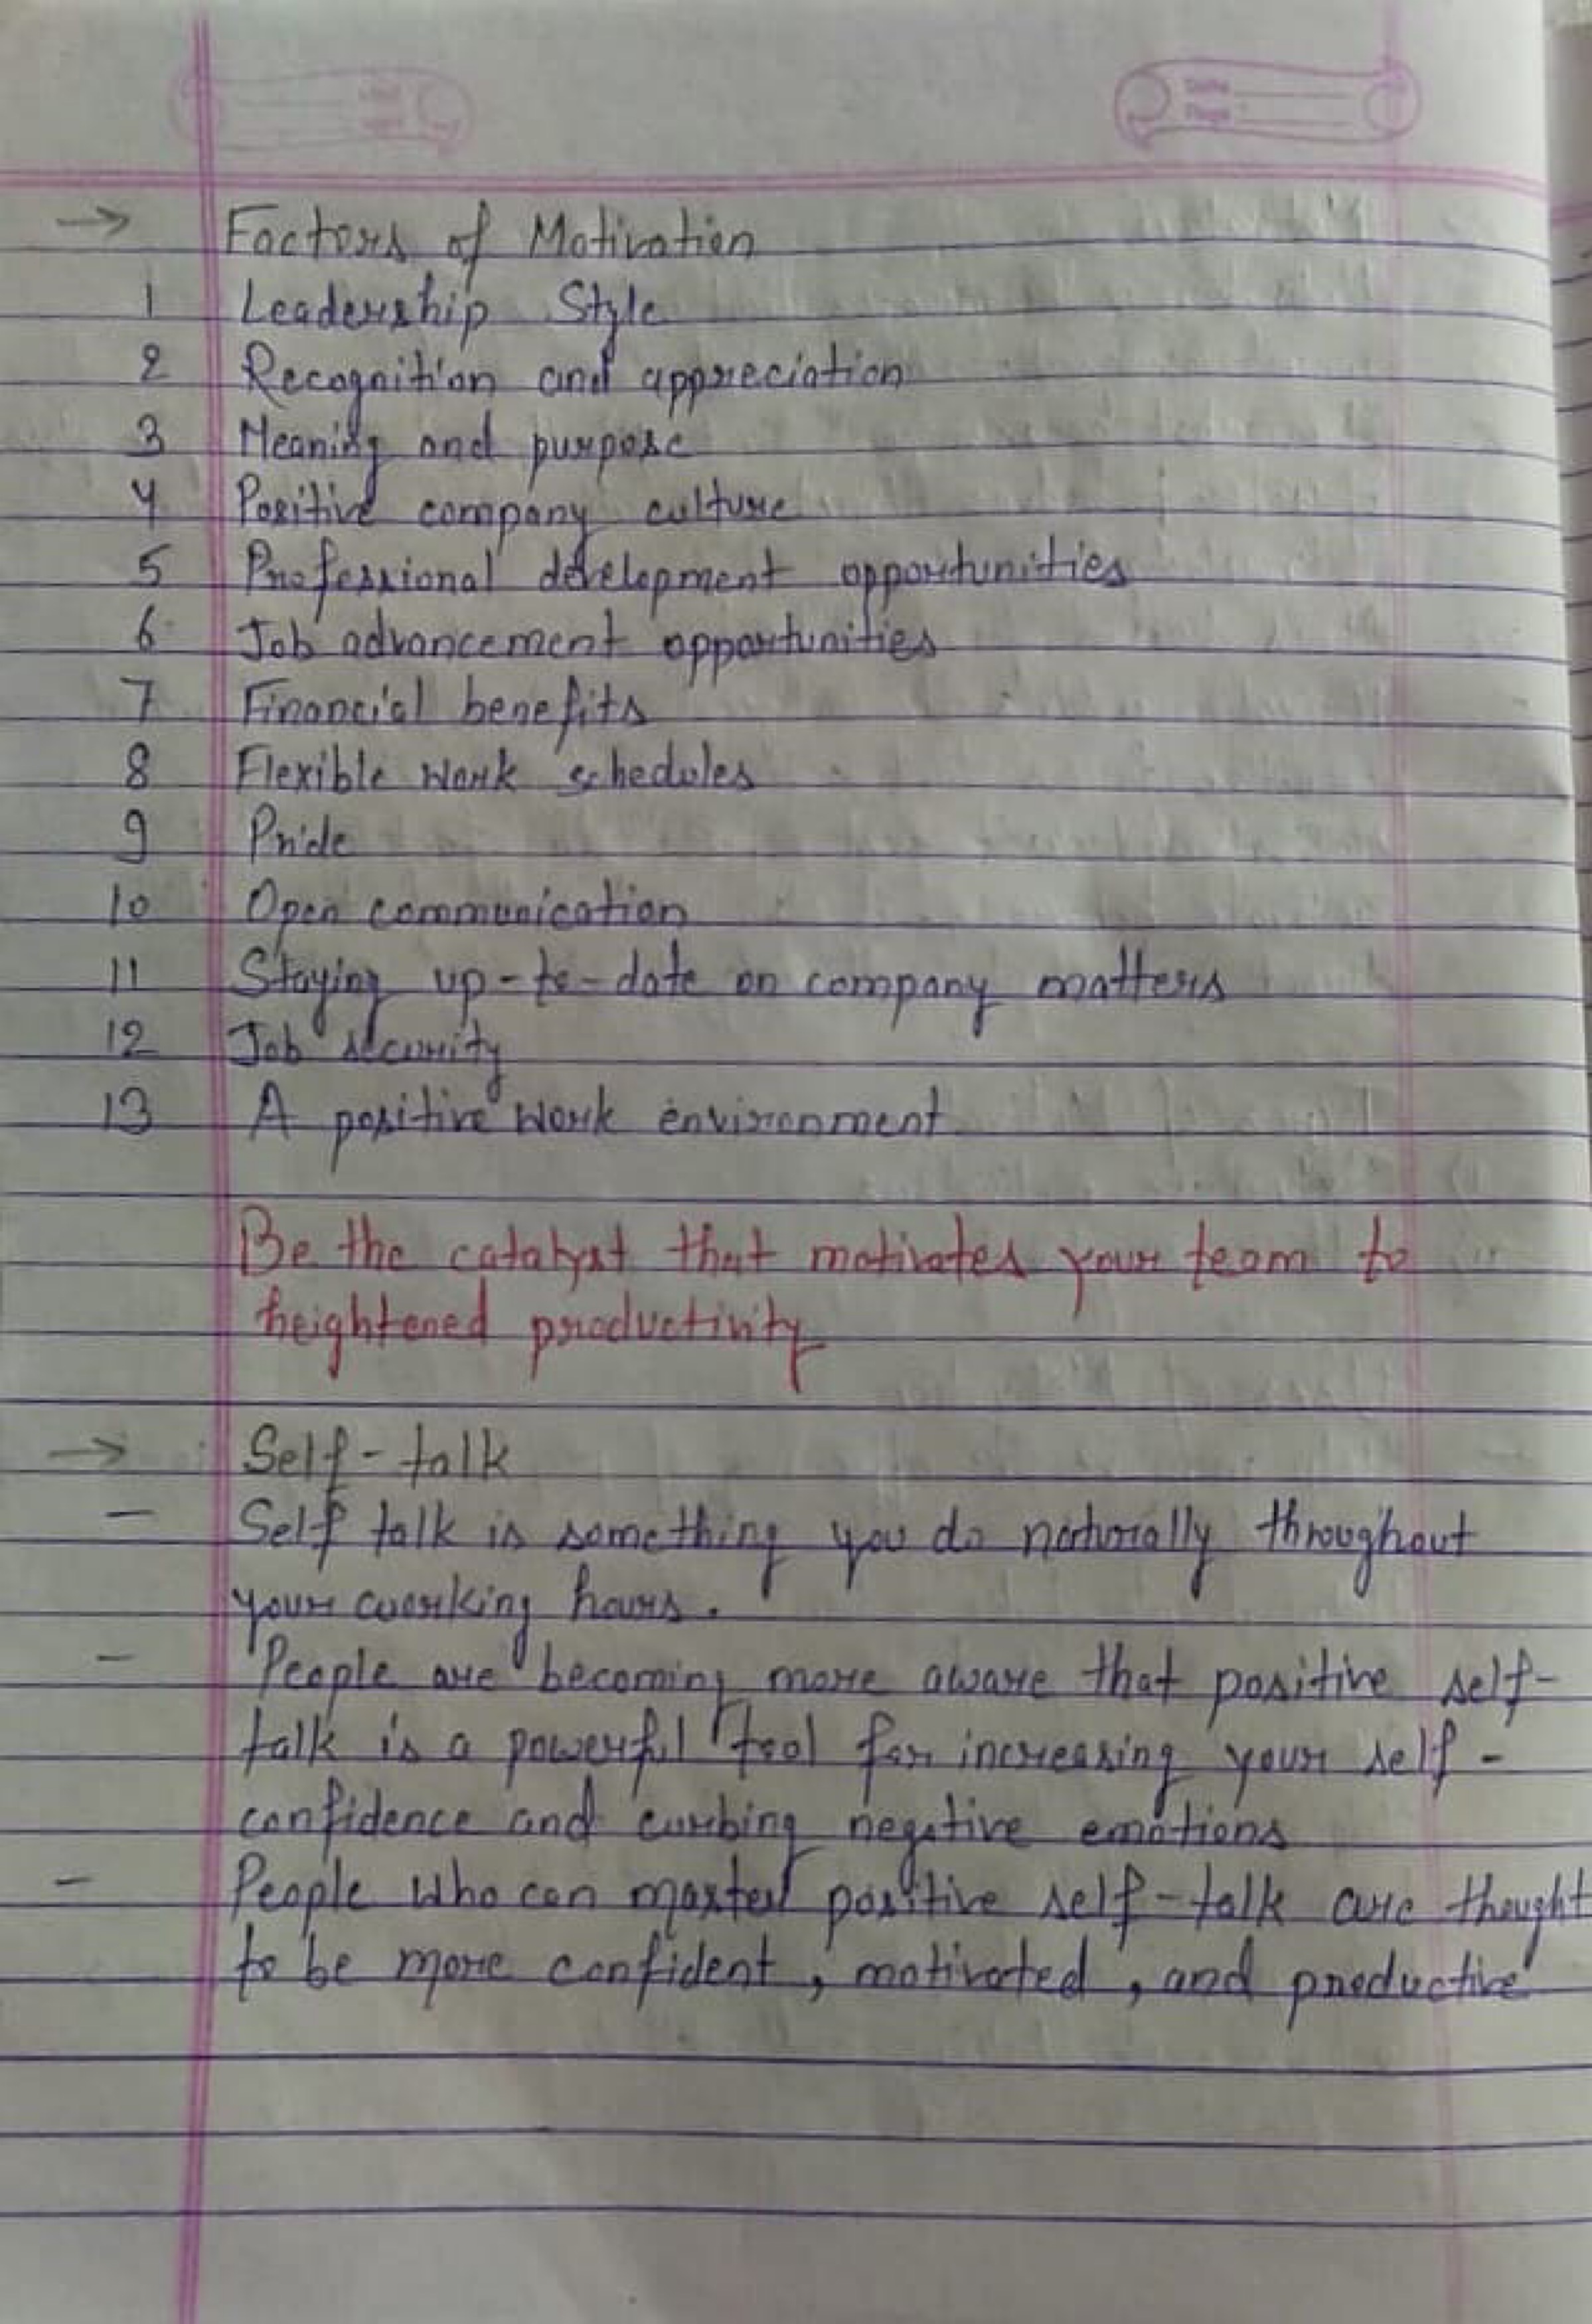 Date
Page
→ Factors of Motivation
1 Leadership Style
2 Recognition and appreciation
3 Meaning and purpose
4 Positive company culture
5 Professional development opportunities
6 Job advancement opportunities
7 Financial benefits
8 Flexible work schedules
9 Pride
10 Open communication
11 Staying up-to-date on company matters
12 Job security
13 A positive work environment
Be the catalyst that motivates your team to
heightened productivity
→ Self-talk
- Self talk is something you do naturally throughout
your working hours.
- People are becoming more aware that positive self-
talk is a powerful tool for increasing your self-
confidence and curbing negative emotions
- People who can master positive self-talk are thought
to be more confident, motivated, and productive